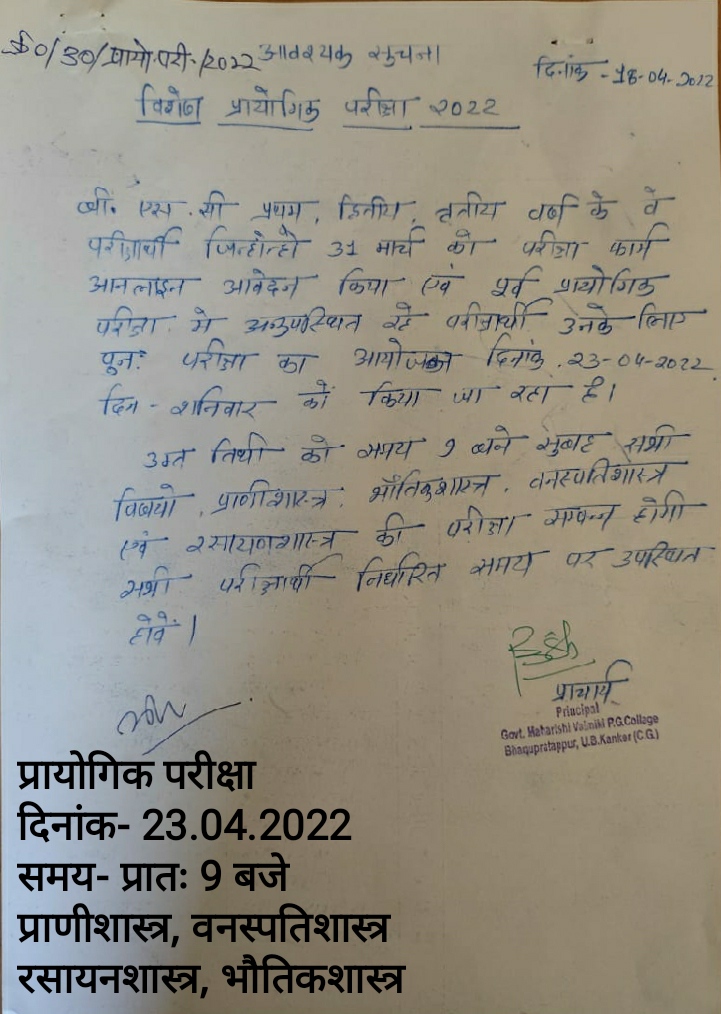 क्र०/30/प्रायो.परी./2022 आवश्यक सुचना
दिनांक -18-04-2022
विशेष प्रायोगिक परीक्षा 2022
बी. एस. सी प्रथम, द्वितीय, तृतीय वर्ष के वे
परीक्षार्थी जिन्होन्हो 31 मार्च को परीक्षा फार्म
आनलाइन आवेदन किया एवं पूर्व प्रायोगिक
परीक्षा में अनुपस्थित रहे परीक्षार्थी उनके लिए
पुन: परीक्षा का आयोजन दिनांक. 23-04-2022
दिन - शनिवार को किया जा रहा है।
उक्त तिथी को समय 9 बजे सुबह सभी
विषयो, प्राणीशास्त्र, भौतिकशास्त्र, वनस्पतिशास्त्र
एवं रसायणशास्त्र की परीक्षा सम्पन्न होगी
सभी परीक्षार्थी निर्धारित समय पर उपस्थित
होवें।
प्राचार्य
Principal
Govt. Maharishi Valmiki P.G.College
Bhanupratappur, U.B.Kanker (C.G.)
प्रायोगिक परीक्षा
दिनांक- 23.04.2022
समय- प्रातः 9 बजे
प्राणीशास्त्र, वनस्पतिशास्त्र
रसायनशास्त्र, भौतिकशास्त्र